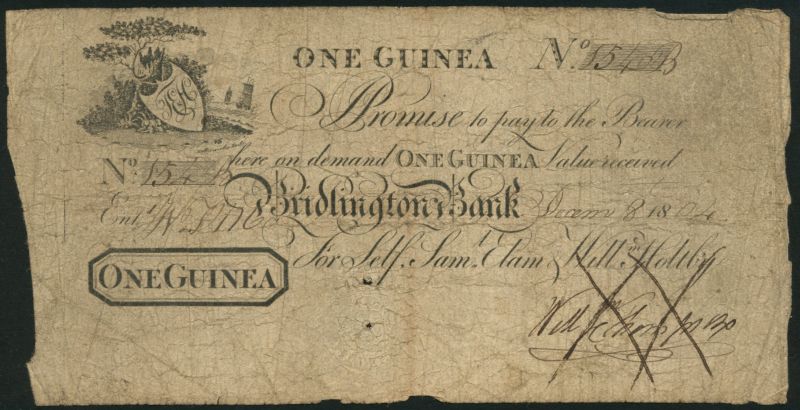 ONE GUINEA No. 154 B
I Promise to pay to the Bearer
No. 154 B here on demand ONE GUINEA Value received
Entd. Bridlington Bank Decem 8 18
For Self, Saml. Elam & Willm. Moltby
ONE GUINEA
Will